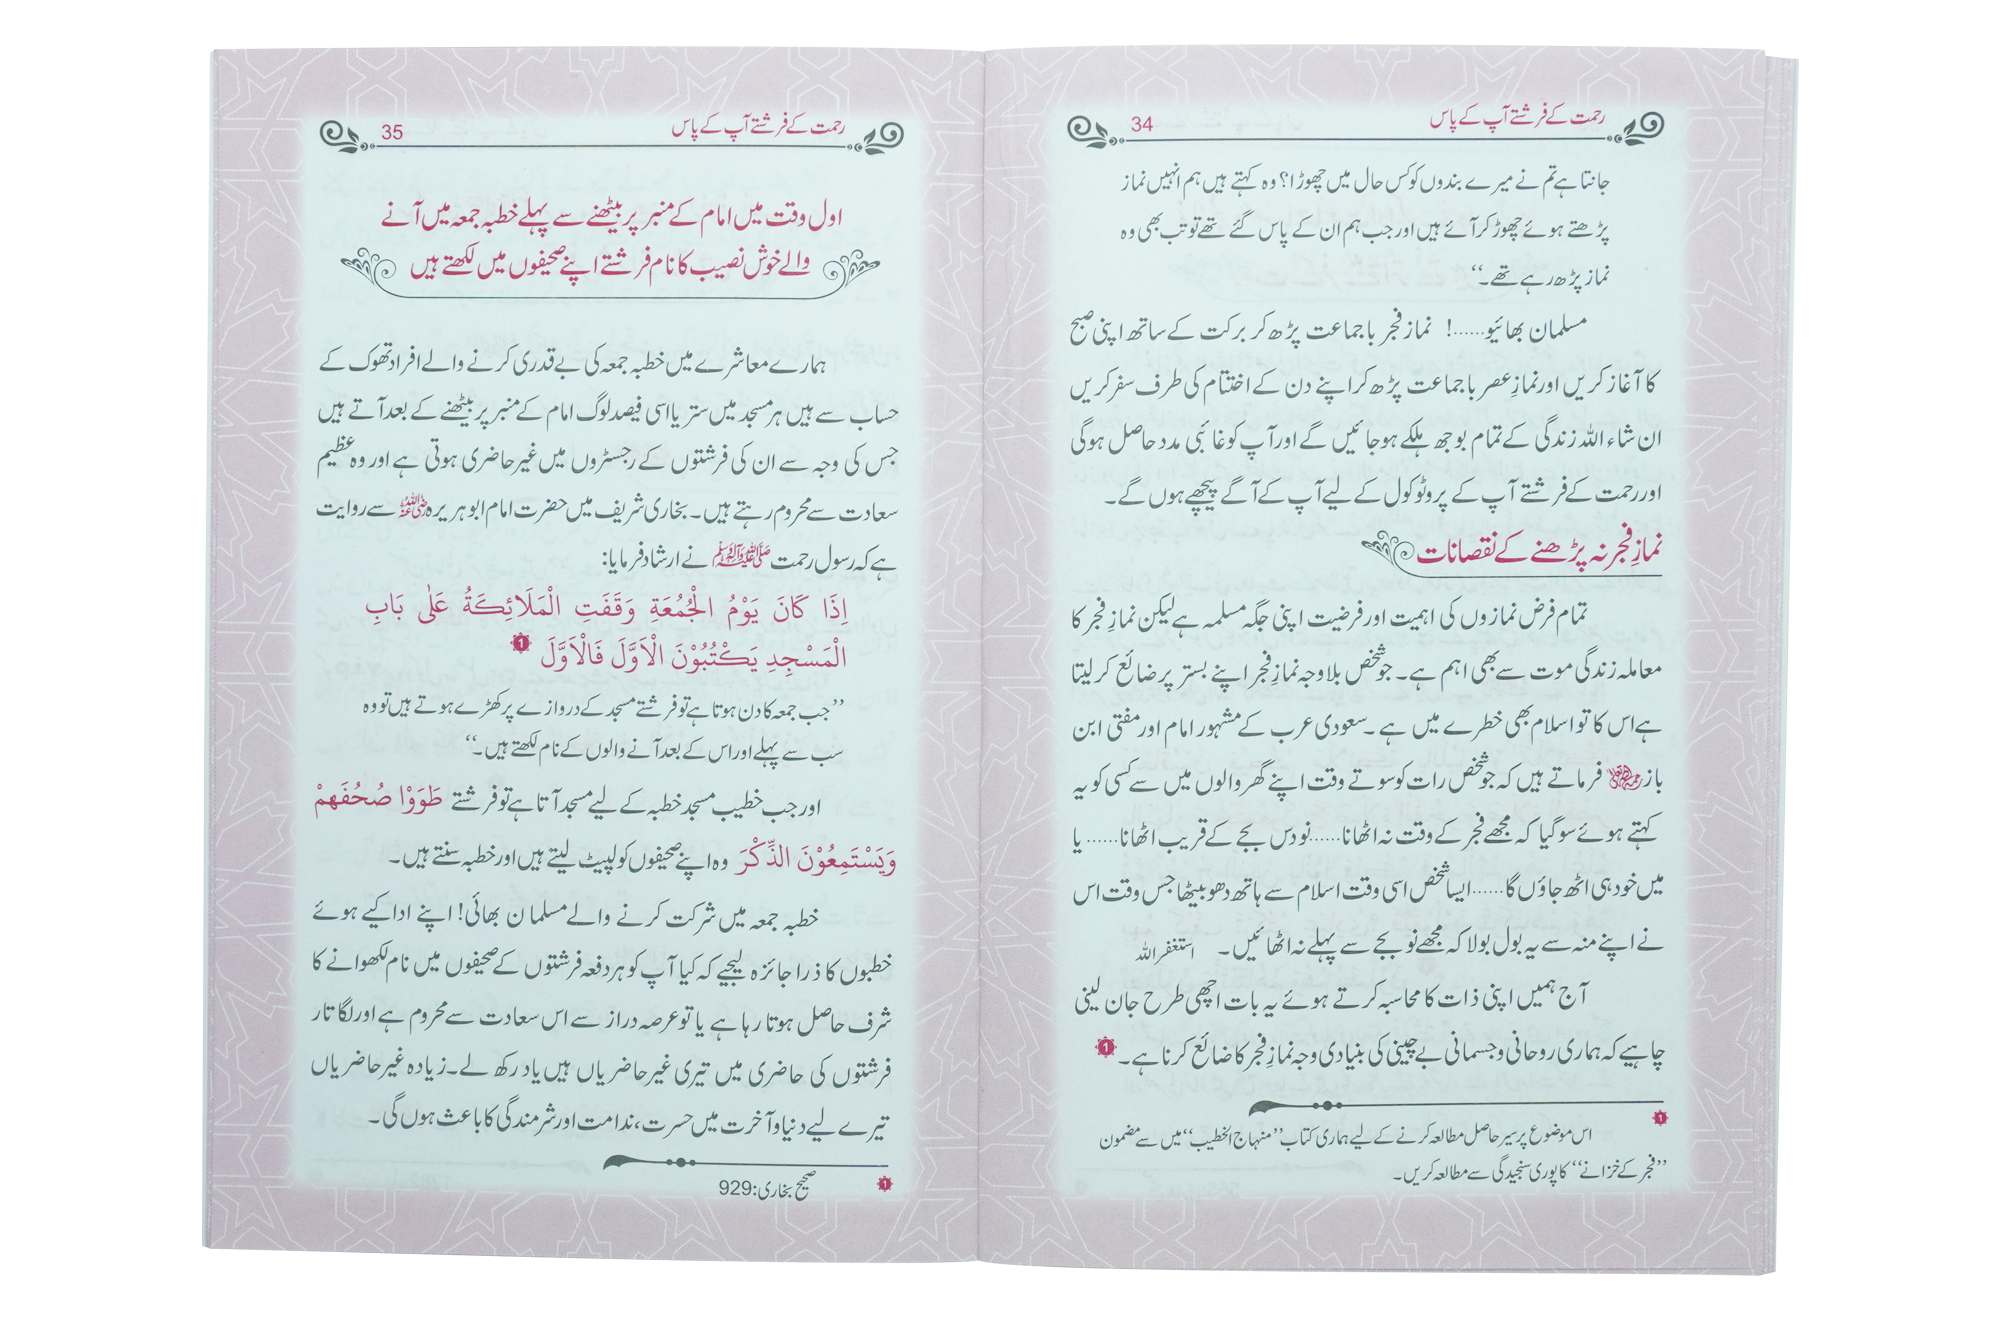 رحمت کے فرشتے آپ کے پاس 34
جانتا ہے تم نے میرے بندوں کو کس حال میں چھوڑا؟ وہ کہتے ہیں ہم انہیں نماز
پڑھتے ہوئے چھوڑ کر آئے ہیں اور جب ہم ان کے پاس گئے تھے تو تب بھی وہ
نماز پڑھ رہے تھے۔‘‘
مسلمان بھائیو......! نماز فجر باجماعت پڑھ کر برکت کے ساتھ اپنی صبح
کا آغاز کریں اور نمازِ عصر باجماعت پڑھ کر اپنے دن کے اختتام کی طرف سفر کریں
ان شاء اللہ زندگی کے تمام بوجھ ہلکے ہو جائیں گے اور آپ کو غائبی مدد حاصل ہوگی
اور رحمت کے فرشتے آپ کے پروٹوکول کے لیے آپ کے آگے پیچھے ہوں گے۔
نمازِ فجر نہ پڑھنے کے نقصانات
تمام فرض نمازوں کی اہمیت اور فرضیت اپنی جگہ مسلمہ ہے لیکن نمازِ فجر کا
معاملہ زندگی موت سے بھی اہم ہے۔ جو شخص بلاوجہ نمازِ فجر اپنے بستر پر ضائع کر لیتا
ہے اس کا تو اسلام بھی خطرے میں ہے۔ سعودی عرب کے مشہور امام اور مفتی ابن
باز رحمہ اللہ فرماتے ہیں کہ جو شخص رات کو سوتے وقت اپنے گھر والوں میں سے کسی کو یہ
کہتے ہوئے سو گیا کہ مجھے فجر کے وقت نہ اٹھانا......نو دس بجے کے قریب اٹھانا...... یا
میں خود ہی اٹھ جاؤں گا......ایسا شخص اسی وقت اسلام سے ہاتھ دھو بیٹھا جس وقت اس
نے اپنے منہ سے یہ بول بولا کہ مجھے نو بجے سے پہلے نہ اٹھائیں۔ استغفر اللہ
آج ہمیں اپنی ذات کا محاسبہ کرتے ہوئے یہ بات اچھی طرح جان لینی
چاہیے کہ ہماری روحانی و جسمانی بے چینی کی بنیادی وجہ نمازِ فجر کا ضائع کرنا ہے۔ 1
1 اس موضوع پر سیر حاصل مطالعہ کرنے کے لیے ہماری کتاب ’’منہاج الخطیب‘‘ میں سے مضمون
’’فجر کے خزانے‘‘ کا پوری سنجیدگی سے مطالعہ کریں۔
رحمت کے فرشتے آپ کے پاس 35
اول وقت میں امام کے منبر پر بیٹھنے سے پہلے خطبہ جمعہ میں آنے
والے خوش نصیب کا نام فرشتے اپنے صحیفوں میں لکھتے ہیں
ہمارے معاشرے میں خطبہ جمعہ کی بے قدری کرنے والے افراد تھوک کے
حساب سے ہیں ہر مسجد میں ستر یا اسی فیصد لوگ امام کے منبر پر بیٹھنے کے بعد آتے ہیں
جس کی وجہ سے ان کی فرشتوں کے رجسٹروں میں غیر حاضری ہوتی ہے اور وہ عظیم
سعادت سے محروم رہتے ہیں۔ بخاری شریف میں حضرت امام ابو ہریرہ رضی اللہ عنہ سے روایت
ہے کہ رسول رحمت صلی اللہ علیہ وآلہ وسلم نے ارشاد فرمایا:
اِذَا كَانَ يَوْمُ الْجُمُعَةِ وَقَفَتِ الْمَلَائِكَةُ عَلٰى بَابِ
الْمَسْجِدِ يَكْتُبُوْنَ الْاَوَّلَ فَالْاَوَّلَ 1
’’جب جمعہ کا دن ہوتا ہے تو فرشتے مسجد کے دروازے پر کھڑے ہوتے ہیں تو وہ
سب سے پہلے اور اس کے بعد آنے والوں کے نام لکھتے ہیں۔‘‘
اور جب خطیب مسجد خطبہ کے لیے مسجد آتا ہے تو فرشتے طَوَوْا صُحُفَهِمْ
وَيَسْتَمِعُوْنَ الذِّكْرَ وہ اپنے صحیفوں کو لپیٹ لیتے ہیں اور خطبہ سنتے ہیں۔
خطبہ جمعہ میں شرکت کرنے والے مسلمان بھائی! اپنے ادا کیے ہوئے
خطبوں کا ذرا جائزہ لیجیے کہ کیا آپ کو ہر دفعہ فرشتوں کے صحیفوں میں نام لکھوانے کا
شرف حاصل ہوتا رہا ہے یا تو عرصہ دراز سے اس سعادت سے محروم ہے اور لگاتار
فرشتوں کی حاضری میں تیری غیر حاضریاں ہیں یاد رکھ لے۔ زیادہ غیر حاضریاں
تیرے لیے دنیا و آخرت میں حسرت، ندامت اور شرمندگی کا باعث ہوں گی۔
1 صحیح بخاری: 929